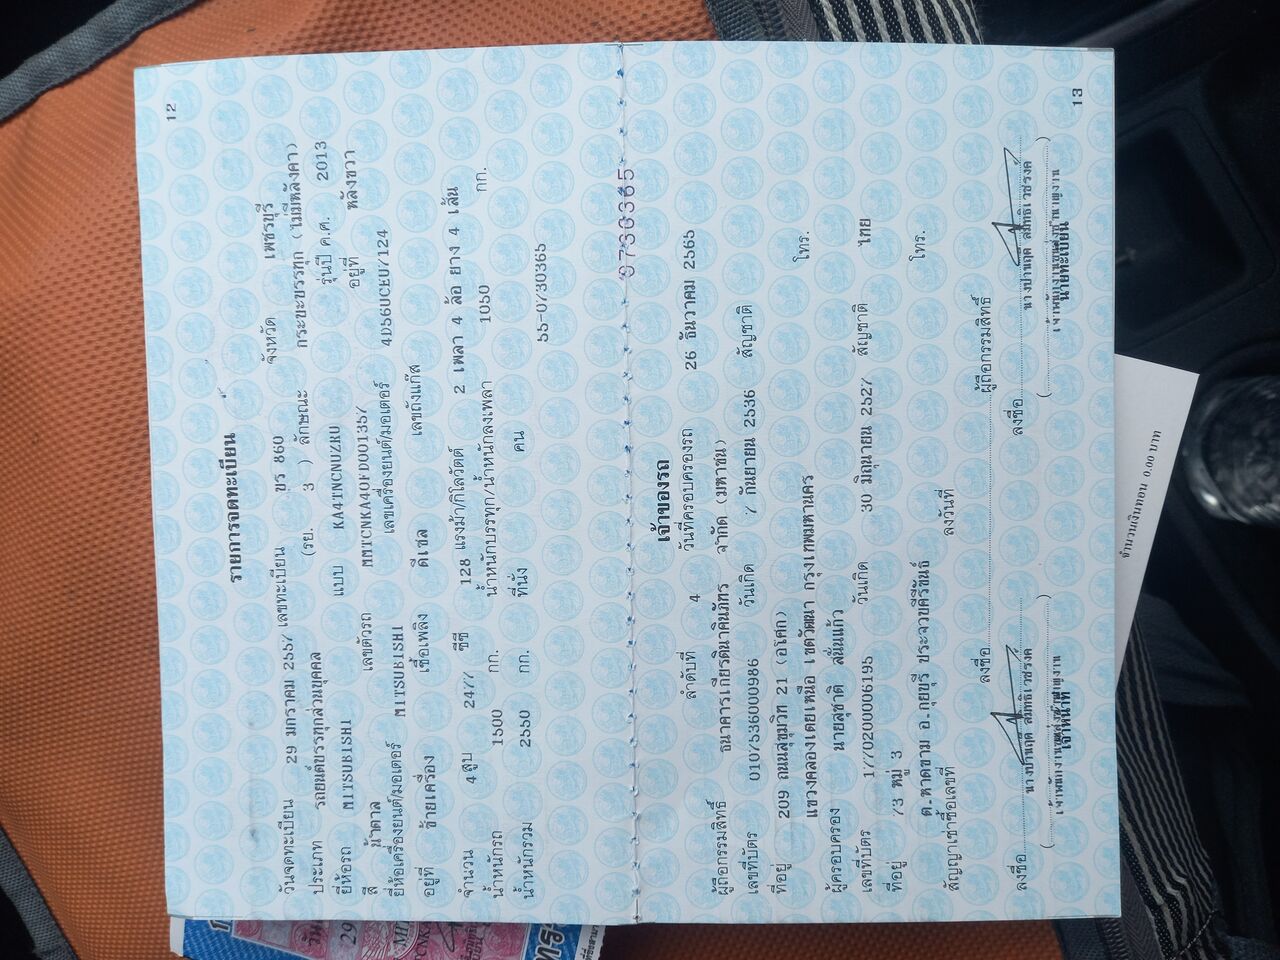 12
รายการจดทะเบียน
วันจดทะเบียน 29 มกราคม 2557 เลขทะเบียน ขร 860 จังหวัด เพชรบุรี
ประเภท รถยนต์บรรทุกส่วนบุคคล (รย. 3 ) ลักษณะ กระบะบรรทุก (ไม่มีหลังคา)
ยี่ห้อรถ MITSUBISHI แบบ KA4TNCNUZRU รุ่นปี ค.ศ. 2013
สี น้ำตาล เลขตัวรถ MMTCNKA40FD001357 อยู่ที่ หลังขวา
ยี่ห้อเครื่องยนต์/มอเตอร์ MITSUBISHI เลขเครื่องยนต์/มอเตอร์ 4D56UCEU7124
อยู่ที่ ซ้ายเครื่อง เชื้อเพลิง ดีเซล เลขถังแก๊ส
จำนวน 4 สูบ 2477 ซีซี 128 แรงม้า/กิโลวัตต์ 2 เพลา 4 ล้อ ยาง 4 เส้น
น้ำหนักรถ 1500 กก. น้ำหนักบรรทุก/น้ำหนักลงเพลา 1050 กก.
น้ำหนักรวม 2550 กก. ที่นั่ง คน
55-0730365
0730365
เจ้าของรถ
ลำดับที่ 4 วันที่ครอบครองรถ 26 ธันวาคม 2565
ผู้ถือกรรมสิทธิ์ ธนาคารเกียรตินาคินภัทร จำกัด (มหาชน)
เลขที่บัตร 0107536000986 วันเกิด 7 กันยายน 2536 สัญชาติ
ที่อยู่ 209 ถนนสุขุมวิท 21 (อโศก) โทร.
แขวงคลองเตยเหนือ เขตวัฒนา กรุงเทพมหานคร
ผู้ครอบครอง นายสุชาติ สนั่นแก้ว
เลขที่บัตร 1770200006195 วันเกิด 30 มิถุนายน 2527 สัญชาติ ไทย
ที่อยู่ 73 หมู่ 3 โทร.
ต.หาดขาม อ.กุยบุรี ประจวบคีรีขันธ์
สัญญาเช่าซื้อเลขที่ ลงวันที่
ลงชื่อ ผู้ถือกรรมสิทธิ์
ลงชื่อ ลงชื่อ
เจ้าหน้าที่ นายทะเบียน
13
จำนวนเงินทอน 0.00 บาท
29